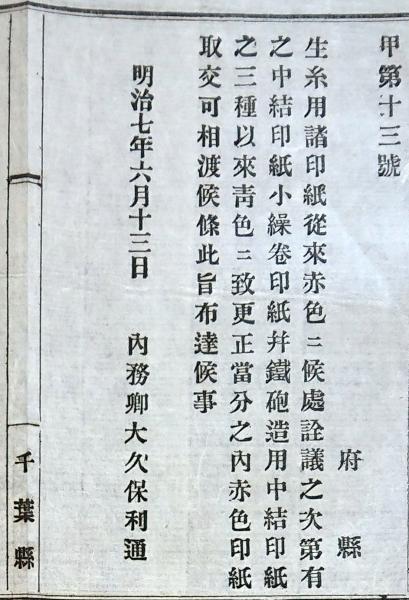 甲第十三號
府縣
生糸用諸印紙從來赤色ニ候處詮議之次第有
之中結印紙小繰卷印紙幷鐵砲造用中結印紙
之三種以來靑色ニ致更正當分之內赤色印紙
取交可相渡候條此旨布達候事
明治七年六月十三日 內務卿大久保利通
千葉縣